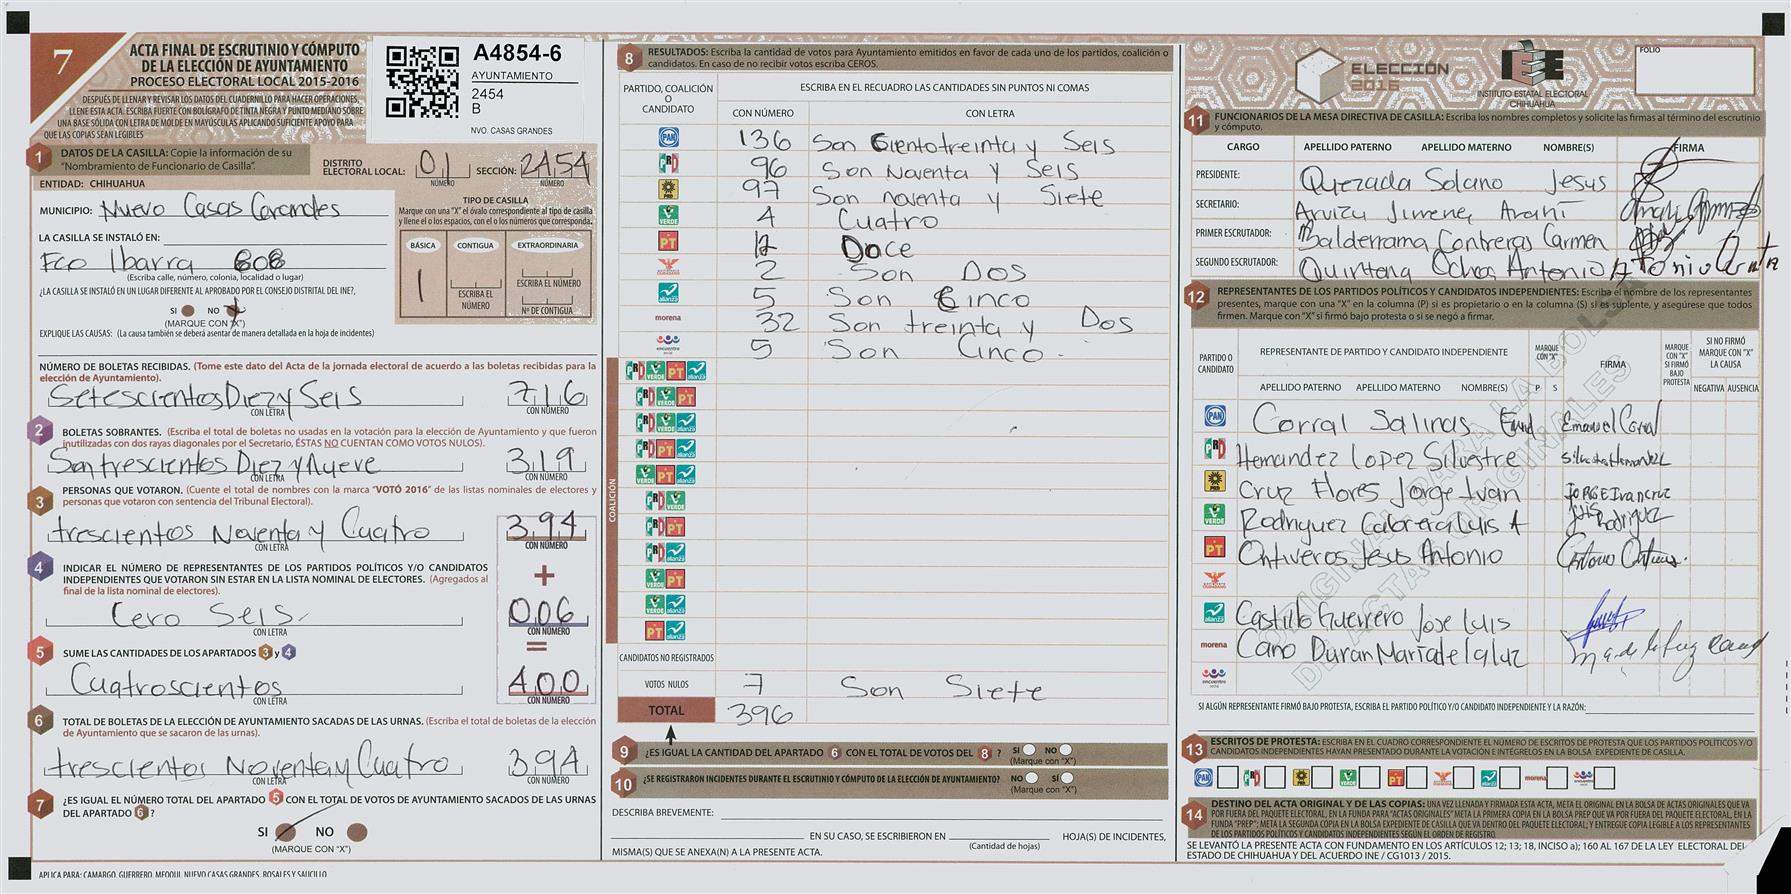 7
ACTA FINAL DE ESCRUTINIO Y CÓMPUTO
DE LA ELECCIÓN DE AYUNTAMIENTO
PROCESO ELECTORAL LOCAL 2015-2016
DESPUÉS DE LLENAR Y REVISAR LOS DATOS DEL CUADERNILLO PARA HACER OPERACIONES,
LLENE ESTA ACTA. ESCRIBA FUERTE CON BOLÍGRAFO DE TINTA NEGRA Y PUNTO MEDIANO SOBRE
UNA BASE SÓLIDA CON LETRA DE MOLDE EN MAYÚSCULAS APLICANDO SUFICIENTE APOYO PARA
QUE LAS COPIAS SEAN LEGIBLES
A4854-6
AYUNTAMIENTO
2454
B
NVO. CASAS GRANDES
1 DATOS DE LA CASILLA: Copie la información de su
"Nombramiento de Funcionario de Casilla".
DISTRITO ELECTORAL LOCAL: 01 NÚMERO SECCIÓN: 2454 NÚMERO
ENTIDAD: CHIHUAHUA
MUNICIPIO: Nuevo Casas Grandes
LA CASILLA SE INSTALÓ EN:
Fco Ibarra 606
(Escriba calle, número, colonia, localidad o lugar)
¿LA CASILLA SE INSTALÓ EN UN LUGAR DIFERENTE AL APROBADO POR EL CONSEJO DISTRITAL DEL INE?,
SI NO X
(MARQUE CON "X")
EXPLIQUE LAS CAUSAS: (La causa también se deberá asentar de manera detallada en la hoja de incidentes)
TIPO DE CASILLA
Marque con una "X" el óvalo correspondiente al tipo de casilla
y llene el o los espacios, con el o los números que corresponda.
BÁSICA CONTIGUA EXTRAORDINARIA
1
ESCRIBA EL NÚMERO
ESCRIBA EL NÚMERO
Nº DE CONTIGUA
NÚMERO DE BOLETAS RECIBIDAS. (Tome este dato del Acta de la jornada electoral de acuerdo a las boletas recibidas para la
elección de Ayuntamiento).
Setescientos Diez y Seis 716
CON LETRA CON NÚMERO
2 BOLETAS SOBRANTES. (Escriba el total de boletas no usadas en la votación para la elección de Ayuntamiento y que fueron
inutilizadas con dos rayas diagonales por el Secretario, ÉSTAS NO CUENTAN COMO VOTOS NULOS).
Son trescientos Diez y Nueve 319
CON LETRA CON NÚMERO
3 PERSONAS QUE VOTARON. (Cuente el total de nombres con la marca "VOTÓ 2016" de las listas nominales de electores y
personas que votaron con sentencia del Tribunal Electoral).
trescientos Noventa y Cuatro 394
CON LETRA CON NÚMERO
+
4 INDICAR EL NÚMERO DE REPRESENTANTES DE LOS PARTIDOS POLÍTICOS Y/O CANDIDATOS
INDEPENDIENTES QUE VOTARON SIN ESTAR EN LA LISTA NOMINAL DE ELECTORES. (Agregados al
final de la lista nominal de electores).
Cero Seis 006
CON LETRA CON NÚMERO
=
5 SUME LAS CANTIDADES DE LOS APARTADOS 3 y 4
Cuatroscientos 400
CON LETRA CON NÚMERO
6 TOTAL DE BOLETAS DE LA ELECCIÓN DE AYUNTAMIENTO SACADAS DE LAS URNAS. (Escriba el total de boletas de la elección
de Ayuntamiento que se sacaron de las urnas).
trescientos Noventa y Cuatro 394
CON LETRA CON NÚMERO
7 ¿ES IGUAL EL NÚMERO TOTAL DEL APARTADO 5 CON EL TOTAL DE VOTOS DE AYUNTAMIENTO SACADOS DE LAS URNAS
DEL APARTADO 6?
SI NO
(MARQUE CON "X")
APLICA PARA: CAMARGO, GUERRERO, MEOQUI, NUEVO CASAS GRANDES, ROSALES Y SAUCILLO
8 RESULTADOS: Escriba la cantidad de votos para Ayuntamiento emitidos en favor de cada uno de los partidos, coalición o
candidatos. En caso de no recibir votos escriba CEROS.
PARTIDO, COALICIÓN O CANDIDATO
ESCRIBA EN EL RECUADRO LAS CANTIDADES SIN PUNTOS NI COMAS
CON NÚMERO CON LETRA
PAN 136 Son Cientotreinta y Seis
PRD 96 Son Noventa y Seis
PRD 97 Son noventa y Siete
VERDE 4 Cuatro
PT 12 Doce
2 Son Dos
alianza 5 Son Cinco
morena 32 Son treinta y Dos
encuentro social 5 Son Cinco
COALICIÓN
CANDIDATOS NO REGISTRADOS
VOTOS NULOS 7 Son Siete
TOTAL 396
9 ¿ES IGUAL LA CANTIDAD DEL APARTADO 6 CON EL TOTAL DE VOTOS DEL 8? SI NO
(Marque con "X")
10 ¿SE REGISTRARON INCIDENTES DURANTE EL ESCRUTINIO Y CÓMPUTO DE LA ELECCIÓN DE AYUNTAMIENTO? NO SÍ
(Marque con "X")
DESCRIBA BREVEMENTE:
EN SU CASO, SE ESCRIBIERON EN HOJA(S) DE INCIDENTES,
(Cantidad de hojas)
MISMA(S) QUE SE ANEXA(N) A LA PRESENTE ACTA.
ELECCIÓN 2016
IEE
INSTITUTO ESTATAL ELECTORAL
CHIHUAHUA
FOLIO
11 FUNCIONARIOS DE LA MESA DIRECTIVA DE CASILLA: Escriba los nombres completos y solicite las firmas al término del escrutinio
y cómputo.
CARGO APELLIDO PATERNO APELLIDO MATERNO NOMBRE(S) FIRMA
PRESIDENTE: Quezada Solano Jesus
SECRETARIO: Arvizu Jimenez Anahí
PRIMER ESCRUTADOR: Balderrama Contreras Carmen
SEGUNDO ESCRUTADOR: Quintana Ochoa Antonio
12 REPRESENTANTES DE LOS PARTIDOS POLÍTICOS Y CANDIDATOS INDEPENDIENTES: Escriba el nombre de los representantes
presentes, marque con una "X" en la columna (P) si es propietario o en la columna (S) si es suplente, y asegúrese que todos
firmen. Marque con "X" si firmó bajo protesta o si se negó a firmar.
PARTIDO O CANDIDATO
REPRESENTANTE DE PARTIDO Y CANDIDATO INDEPENDIENTE
MARQUE CON "X"
FIRMA
MARQUE CON "X" SI FIRMÓ BAJO PROTESTA
SI NO FIRMÓ MARQUE CON "X" LA CAUSA
APELLIDO PATERNO APELLIDO MATERNO NOMBRE(S) P S NEGATIVA AUSENCIA
PAN Corral Salinas Emanuel Corral
Hernandez Lopez Silvestre Silvestre Hernandez
PRD Cruz Flores Jorge Ivan JORGE Ivan Cruz
VERDE Rodriguez Cabrera Luis A Luis Rodriguez
PT Ontiveros Jesus Antonio
alianza Castillo Guerrero Jose Luis
morena Cano Duran Maria de la luz Ma. de la Luz Cano
encuentro social
ORIGINAL PARA LA BOLSA DE ACTAS ORIGINALES
SI ALGÚN REPRESENTANTE FIRMÓ BAJO PROTESTA, ESCRIBA EL PARTIDO POLÍTICO Y/O CANDIDATO INDEPENDIENTE Y LA RAZÓN:
13 ESCRITOS DE PROTESTA: ESCRIBA EN EL CUADRO CORRESPONDIENTE EL NÚMERO DE ESCRITOS DE PROTESTA QUE LOS PARTIDOS POLÍTICOS Y/O
CANDIDATOS INDEPENDIENTES HAYAN PRESENTADO DURANTE LA VOTACIÓN E INTÉGRELOS EN LA BOLSA EXPEDIENTE DE CASILLA.
14 DESTINO DEL ACTA ORIGINAL Y DE LAS COPIAS: UNA VEZ LLENADA Y FIRMADA ESTA ACTA, META EL ORIGINAL EN LA BOLSA DE ACTAS ORIGINALES QUE VA
POR FUERA DEL PAQUETE ELECTORAL, EN LA FUNDA "ACTAS ORIGINALES" META LA PRIMERA COPIA EN LA BOLSA PREP QUE VA POR FUERA DEL PAQUETE ELECTORAL, EN LA
FUNDA "PREP"; META LA SEGUNDA COPIA EN LA BOLSA EXPEDIENTE DE CASILLA QUE VA DENTRO DEL PAQUETE ELECTORAL; Y ENTREGUE COPIA LEGIBLE A LOS REPRESENTANTES
DE LOS PARTIDOS POLÍTICOS Y CANDIDATOS INDEPENDIENTES SEGÚN EL ORDEN DE REGISTRO.
SE LEVANTÓ LA PRESENTE ACTA CON FUNDAMENTO EN LOS ARTÍCULOS 12; 13; 18, INCISO a); 160 AL 167 DE LA LEY ELECTORAL DEL
ESTADO DE CHIHUAHUA Y DEL ACUERDO INE / CG1013 / 2015.